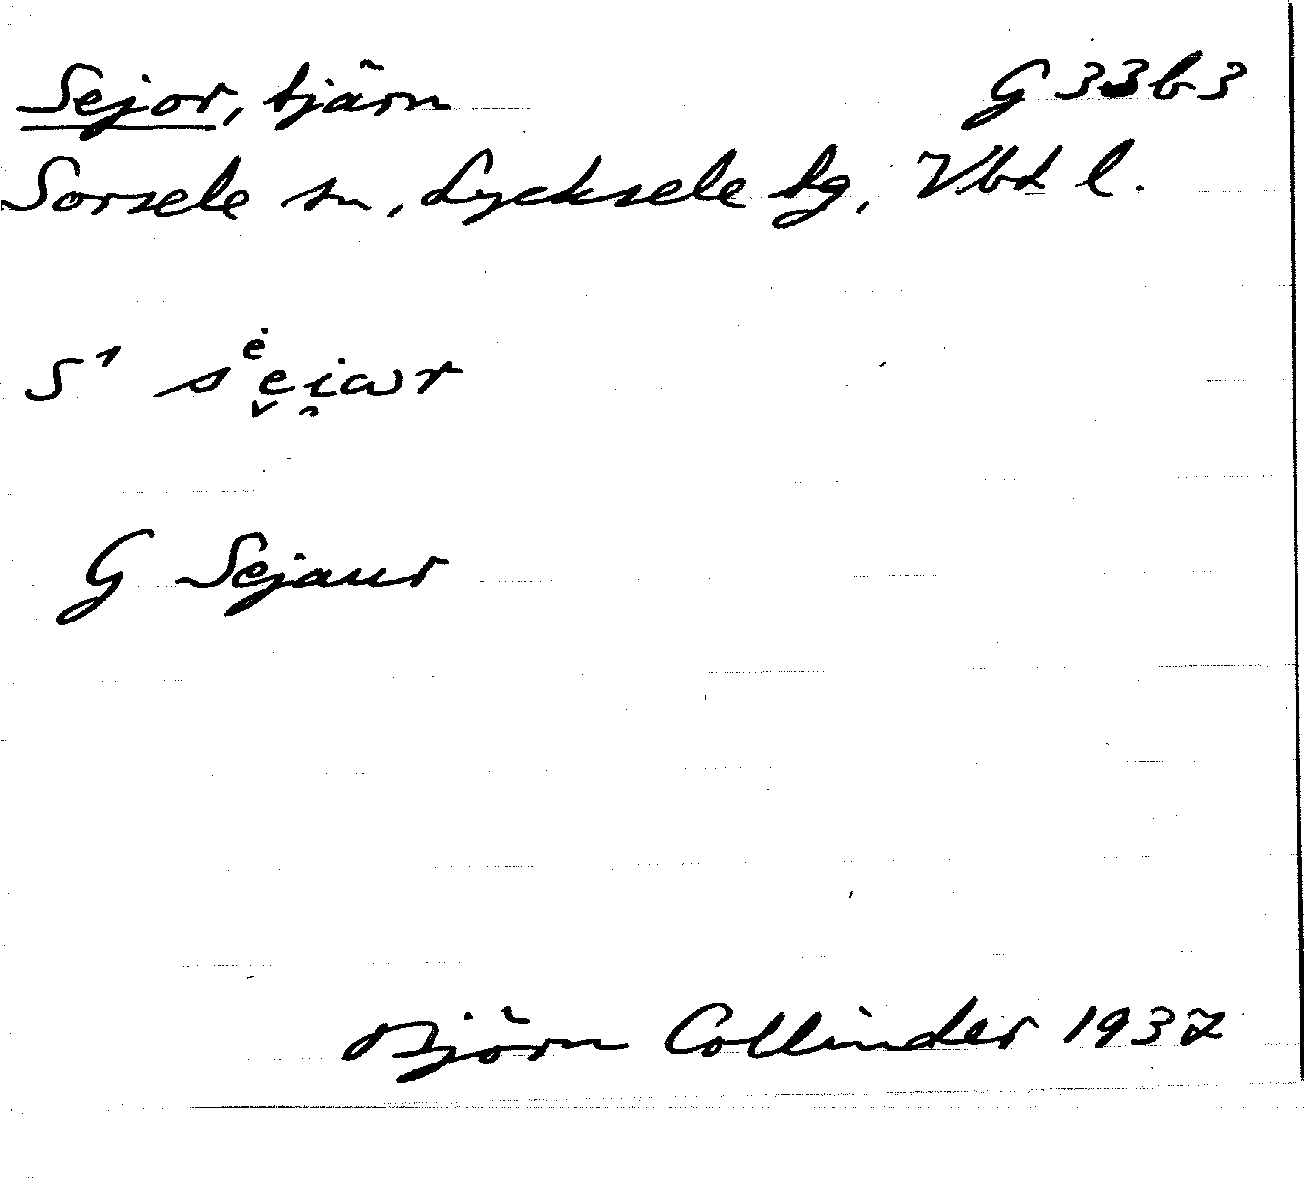 Sejor, tjärn G 33 b 3
Sorsele sn, Lycksele tg, Vbt l.
S¹ sėe̬i̯ɷr
G Sejaur
Björn Collinder 1937